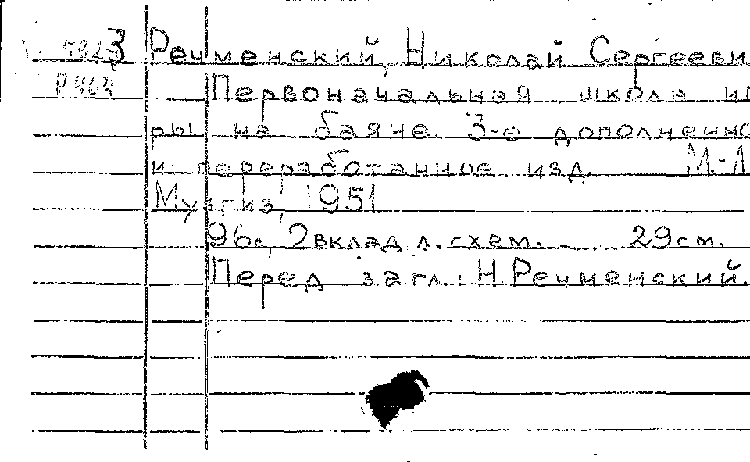 3 Речменский, Николай Сергееви
Первоначальная школа иг
ры на баяне. 3-е дополненно
и переработанное изд. М.-Л
Музгиз, 1951
96с., 2 вклад. л. схем. 29 см.
Перед загл.: Н. Речменский.